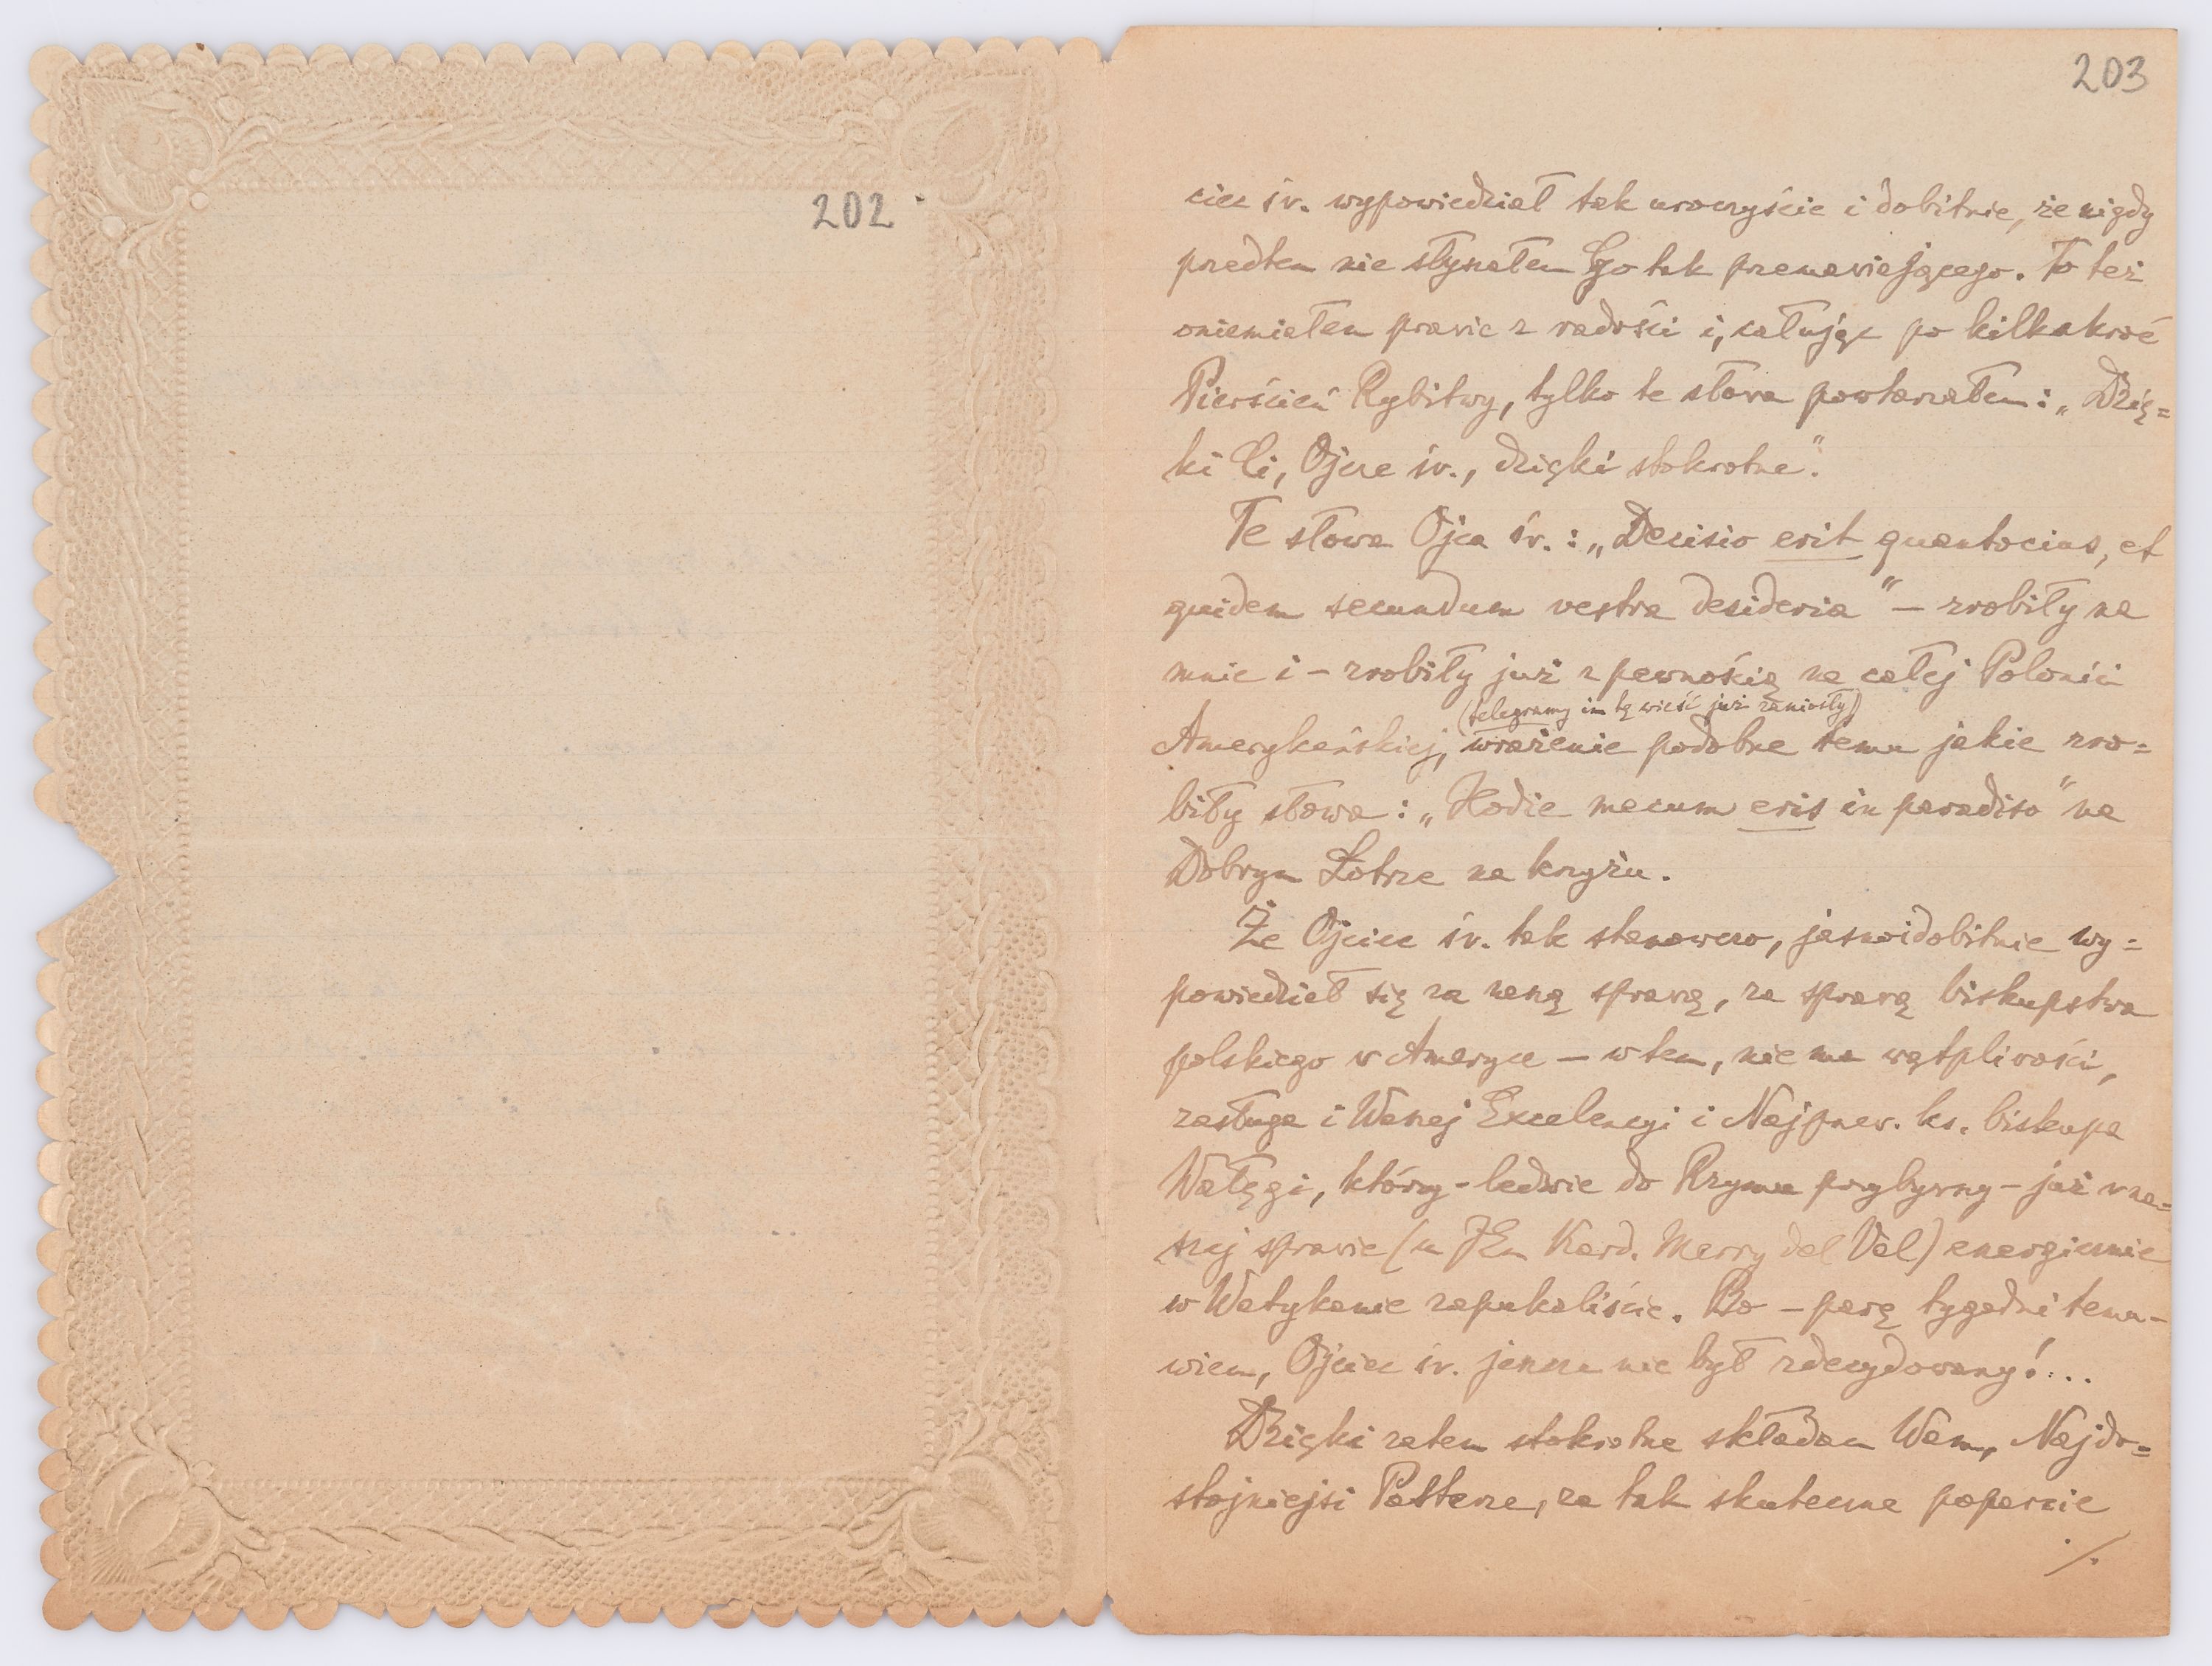 202
203
ciec św. wypowiedział tak uroczyście i dobitnie, że nigdy
przedtem nie słyszałem Go tak przemawiającego. To też
oniemiałem prawie z radości i, całując po kilkakroć
Pierścień Rybitwy, tylko te słowa powtarzałem: „Dzię=
ki Ci, Ojcze św., dzięki stokrotne".
Te słowa Ojca św.: „Decisio erit quantocius, et
quidem secundum vestra desideria" – zrobiły na
mnie i – zrobiły już z pewnością na całej Polonii
(telegramy im tę wieść już zaniosły)
Amerykańskiej, wrażenie podobne temu jakie zro=
biły słowa: „Hodie mecum eris in paradiso" na
Dobrym Łotrze na krzyżu.
Że Ojciec św. tak stanowczo, jasno i dobitnie wy=
powiedział się za naszą sprawą, za sprawą biskupstwa
polskiego w Ameryce – w tem, nie ma wątpliwości,
zasługa i Waszej Excelencyi i Najprzew. ks. biskupa
Wałęgi, którzy – ledwie do Rzymu przybywszy – już w na=
szej sprawie (u JEm Kard. Merry del Val) energicznie
w Watykanie zapukaliście. Bo – parę tygodni temu –
wiem, Ojciec św. jeszcze nie był zdecydowany!...
Dzięki zatem stokrotne składam Wam, Najdo=
stojniejsi Pasterze, za tak skuteczne poparcie
./.